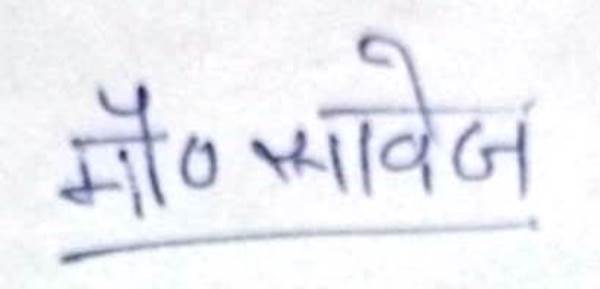 मौ० सावेज